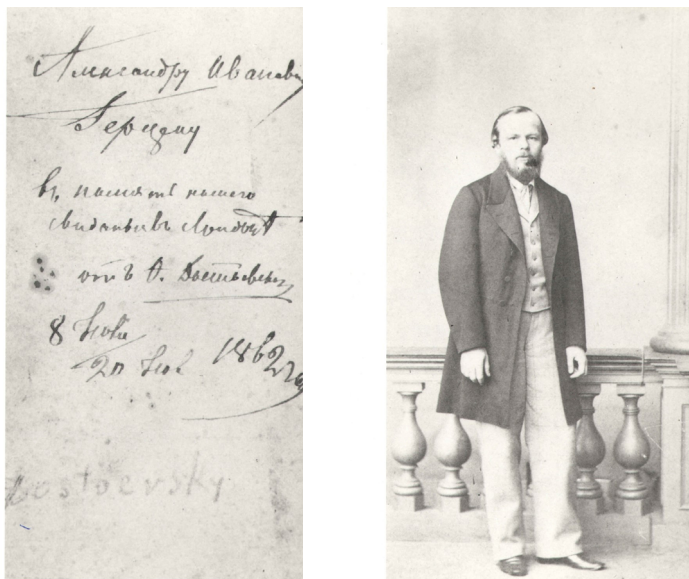 Александру Иванович
Герцену
въ память нашего
свиданья въ Лондонѣ
отъ Ѳ. Достоевскаго
8 Iюля
20 Iюл 1862 го
Dostoevsky